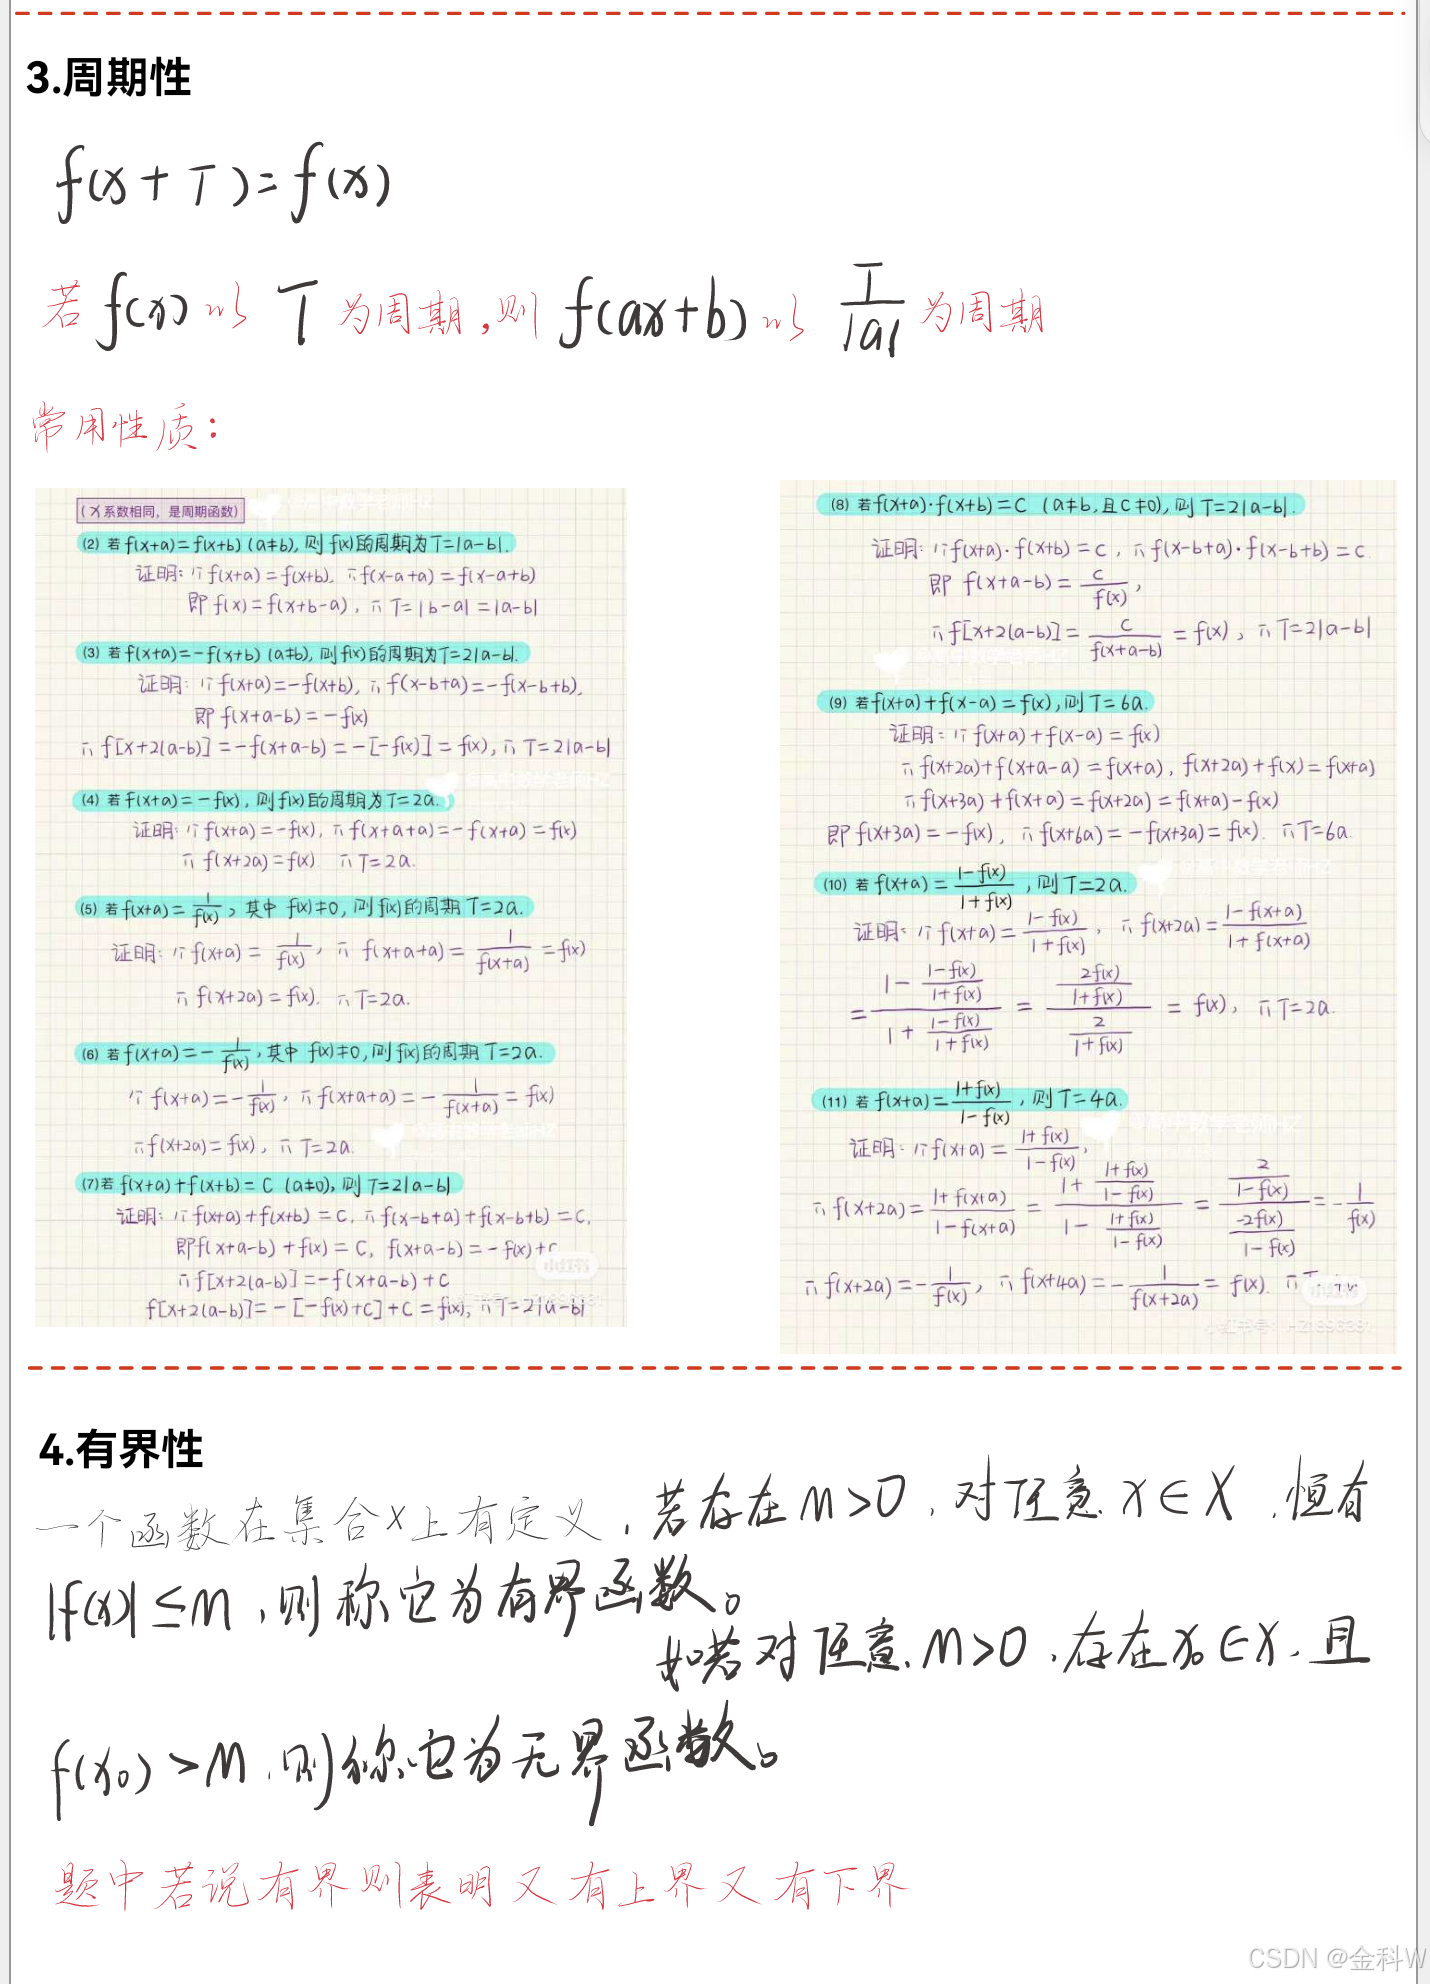 3.周期性
f(x+T)=f(x)
若f(x)以T为周期,则f(ax+b)以T/|a|为周期
常用性质:
(x系数相同,是周期函数)
(2) 若f(x+a)=f(x+b) (a≠b),则f(x)的周期为T=|a-b|.
证明:∵f(x+a)=f(x+b),∴f(x-a+a)=f(x-a+b)
即f(x)=f(x+b-a),∴T=|b-a|=|a-b|
(3) 若f(x+a)=-f(x+b) (a≠b),则f(x)的周期为T=2|a-b|.
证明:∵f(x+a)=-f(x+b),∴f(x-b+a)=-f(x-b+b),
即f(x+a-b)=-f(x)
∴f[x+2(a-b)]=-f(x+a-b)=-[-f(x)]=f(x),∴T=2|a-b|
(4) 若f(x+a)=-f(x),则f(x)的周期为T=2a.
证明:∵f(x+a)=-f(x),∴f(x+a+a)=-f(x+a)=f(x)
∴f(x+2a)=f(x). ∴T=2a.
(5) 若f(x+a)=1/f(x),其中f(x)≠0,则f(x)的周期T=2a.
证明:∵f(x+a)=1/f(x),∴f(x+a+a)=1/f(x+a)=f(x)
∴f(x+2a)=f(x). ∴T=2a.
(6) 若f(x+a)=-1/f(x),其中f(x)≠0,则f(x)的周期T=2a.
∵f(x+a)=-1/f(x),∴f(x+a+a)=-1/f(x+a)=f(x)
∴f(x+2a)=f(x),∴T=2a.
(7)若f(x+a)+f(x+b)=C (a≠0),则T=2|a-b|
证明:∵f(x+a)+f(x+b)=C,∴f(x-b+a)+f(x-b+b)=C,
即f(x+a-b)+f(x)=C, f(x+a-b)=-f(x)+C
∴f[x+2(a-b)]=-f(x+a-b)+C
f[x+2(a-b)]=-[-f(x)+C]+C=f(x),∴T=2|a-b|
小红书
(8) 若f(x+a)·f(x+b)=C (a≠b,且C≠0),则T=2|a-b|.
证明:∵f(x+a)·f(x+b)=C,∴f(x-b+a)·f(x-b+b)=C.
即f(x+a-b)=C/f(x),
∴f[x+2(a-b)]=C/f(x+a-b)=f(x),∴T=2|a-b|
(9) 若f(x+a)+f(x-a)=f(x),则T=6a.
证明:∵f(x+a)+f(x-a)=f(x)
∴f(x+2a)+f(x+a-a)=f(x+a),f(x+2a)+f(x)=f(x+a)
∴f(x+3a)+f(x+a)=f(x+2a)=f(x+a)-f(x)
即f(x+3a)=-f(x),∴f(x+6a)=-f(x+3a)=f(x). ∴T=6a.
(10) 若f(x+a)=(1-f(x))/(1+f(x)),则T=2a.
证明:∵f(x+a)=(1-f(x))/(1+f(x)),∴f(x+2a)=(1-f(x+a))/(1+f(x+a))
=(1-(1-f(x))/(1+f(x)))/(1+(1-f(x))/(1+f(x)))=(2f(x)/(1+f(x)))/(2/(1+f(x)))=f(x),∴T=2a.
(11) 若f(x+a)=(1+f(x))/(1-f(x)),则T=4a.
证明:∵f(x+a)=(1+f(x))/(1-f(x)),
∴f(x+2a)=(1+f(x+a))/(1-f(x+a))=(1+(1+f(x))/(1-f(x)))/(1-(1+f(x))/(1-f(x)))=(2/(1-f(x)))/(-2f(x)/(1-f(x)))=-1/f(x)
∴f(x+2a)=-1/f(x),∴f(x+4a)=-1/f(x+2a)=f(x). ∴T
小红书
4.有界性
一个函数在集合X上有定义,若存在M>0,对任意x∈X,恒有
|f(x)|≤M,则称它为有界函数。
如若对任意M>0,存在x₀∈X,且
f(x₀)>M,则称它为无界函数。
题中若说有界则表明又有上界又有下界
CSDN @金科W